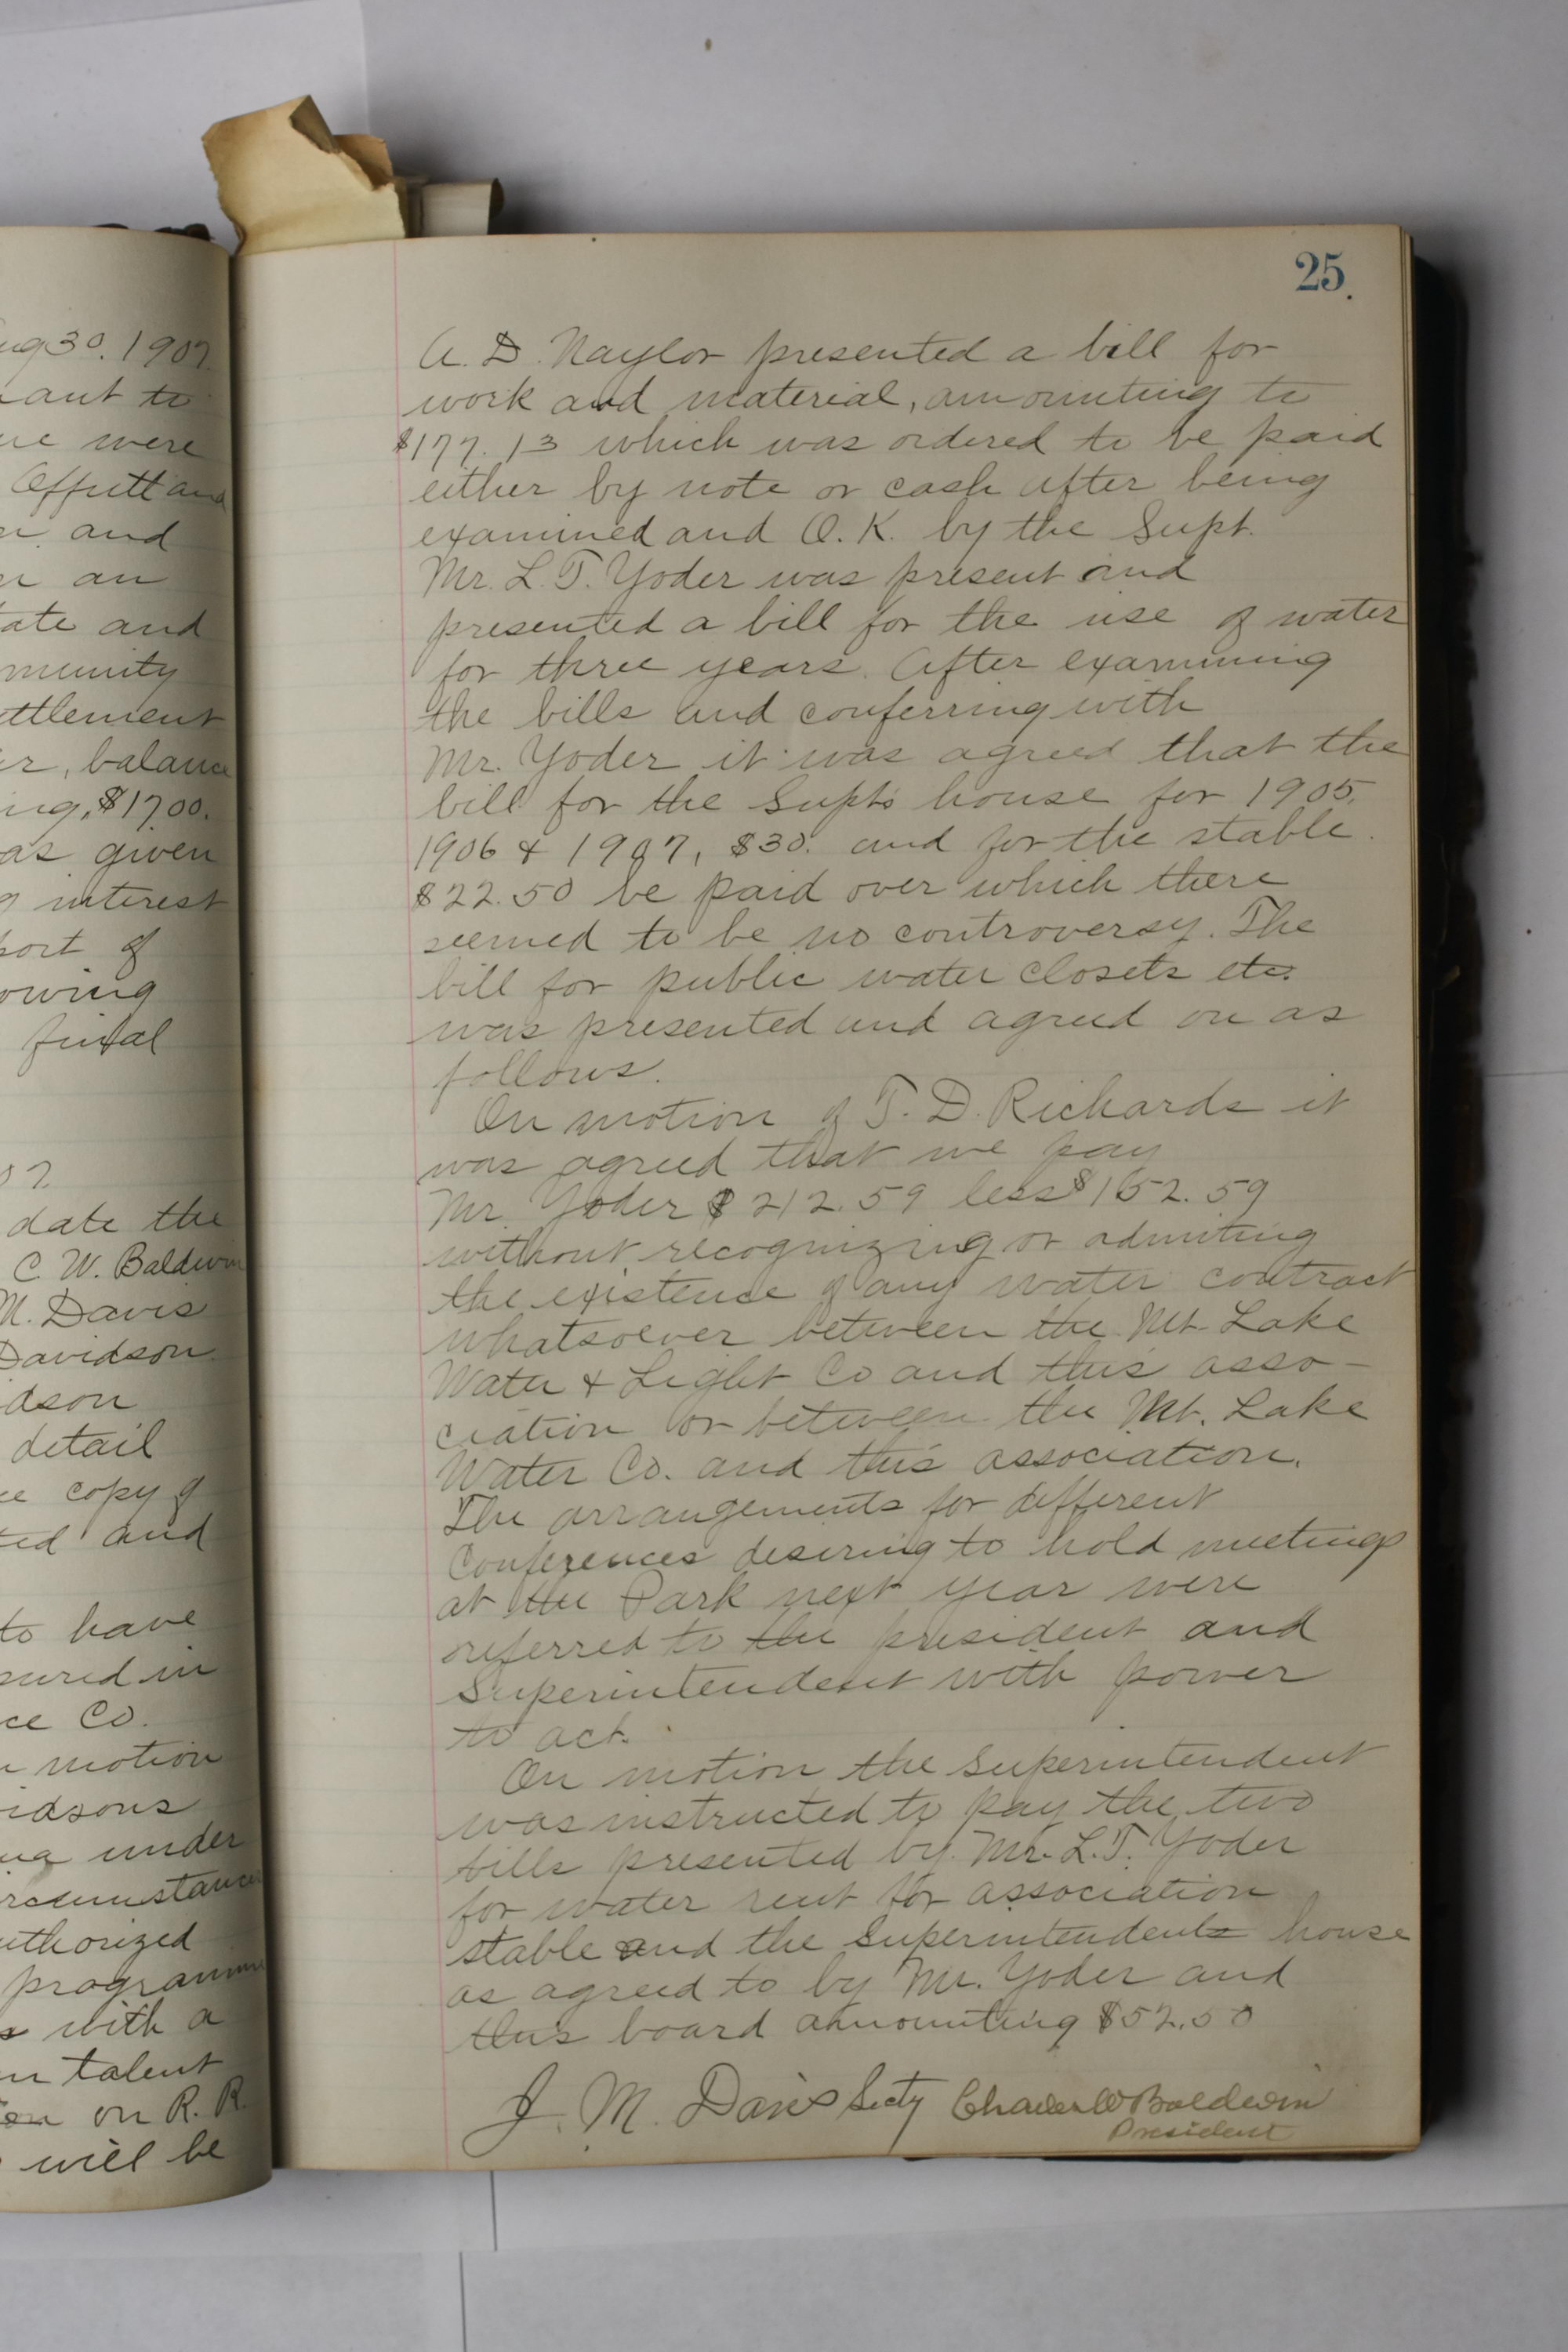 ug 30. 1907.
ant to
were
Offutt and
and
an
ate and
munity
ttlement
r, balance
ing, $1700.
as given
interest
port of
owing
final
07
date the
C. W. Baldwin
M. Davis
Davidson
dson
detail
copy of
ted and
to have
sured in
ce Co.
motion
idsons
under
rcumstances
uthorized
programme
s with a
talent
on R. R.
will be
25.
A. D. Naylor presented a bill for
work and material, amounting to
$177.13 which was ordered to be paid
either by note or cash after being
examined and O. K. by the Supt.
Mr. L. T. Yoder was present and
presented a bill for the use of water
for three years. After examining
the bills and conferring with
Mr. Yoder it was agreed that the
bill for the Supts house for 1905,
1906 & 1907, $30. and for the stable.
$22.50 be paid over which there
seemed to be no controversy. The
bill for public water closets etc.
was presented and agreed on as
follows.
On motion of T. D. Richards it
was agreed that we pay
Mr. Yoder $212.59 less $152.59
without recognizing or admiting
the existence of any water contract
whatsoever between the Mt. Lake
Water & Light Co and this asso-
ciation or between the Mt. Lake
Water Co. and this association.
The arrangements for different
Conferences desiring to hold meetings
at the Park next year were
referred to the president and
Superintendent with power
to act.
On motion the Superintendent
was instructed to pay the two
bills presented by Mr. L. T. Yoder
for water rent for association
stable and the Superintendents house
as agreed to by Mr. Yoder and
this board amounting $52.50
J. M. Davis Secty Charles W Baldwin
President